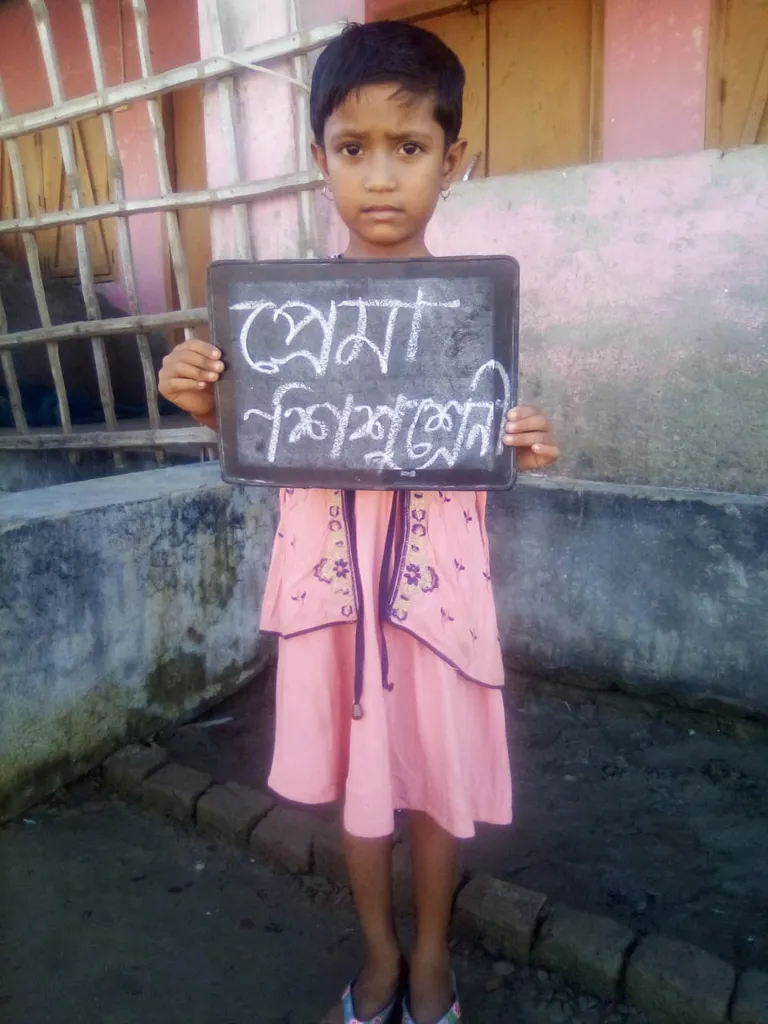 প্রেমা
শিশুশ্রেনী